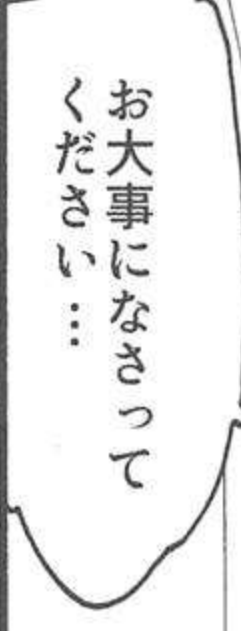 お大事になさって
ください…